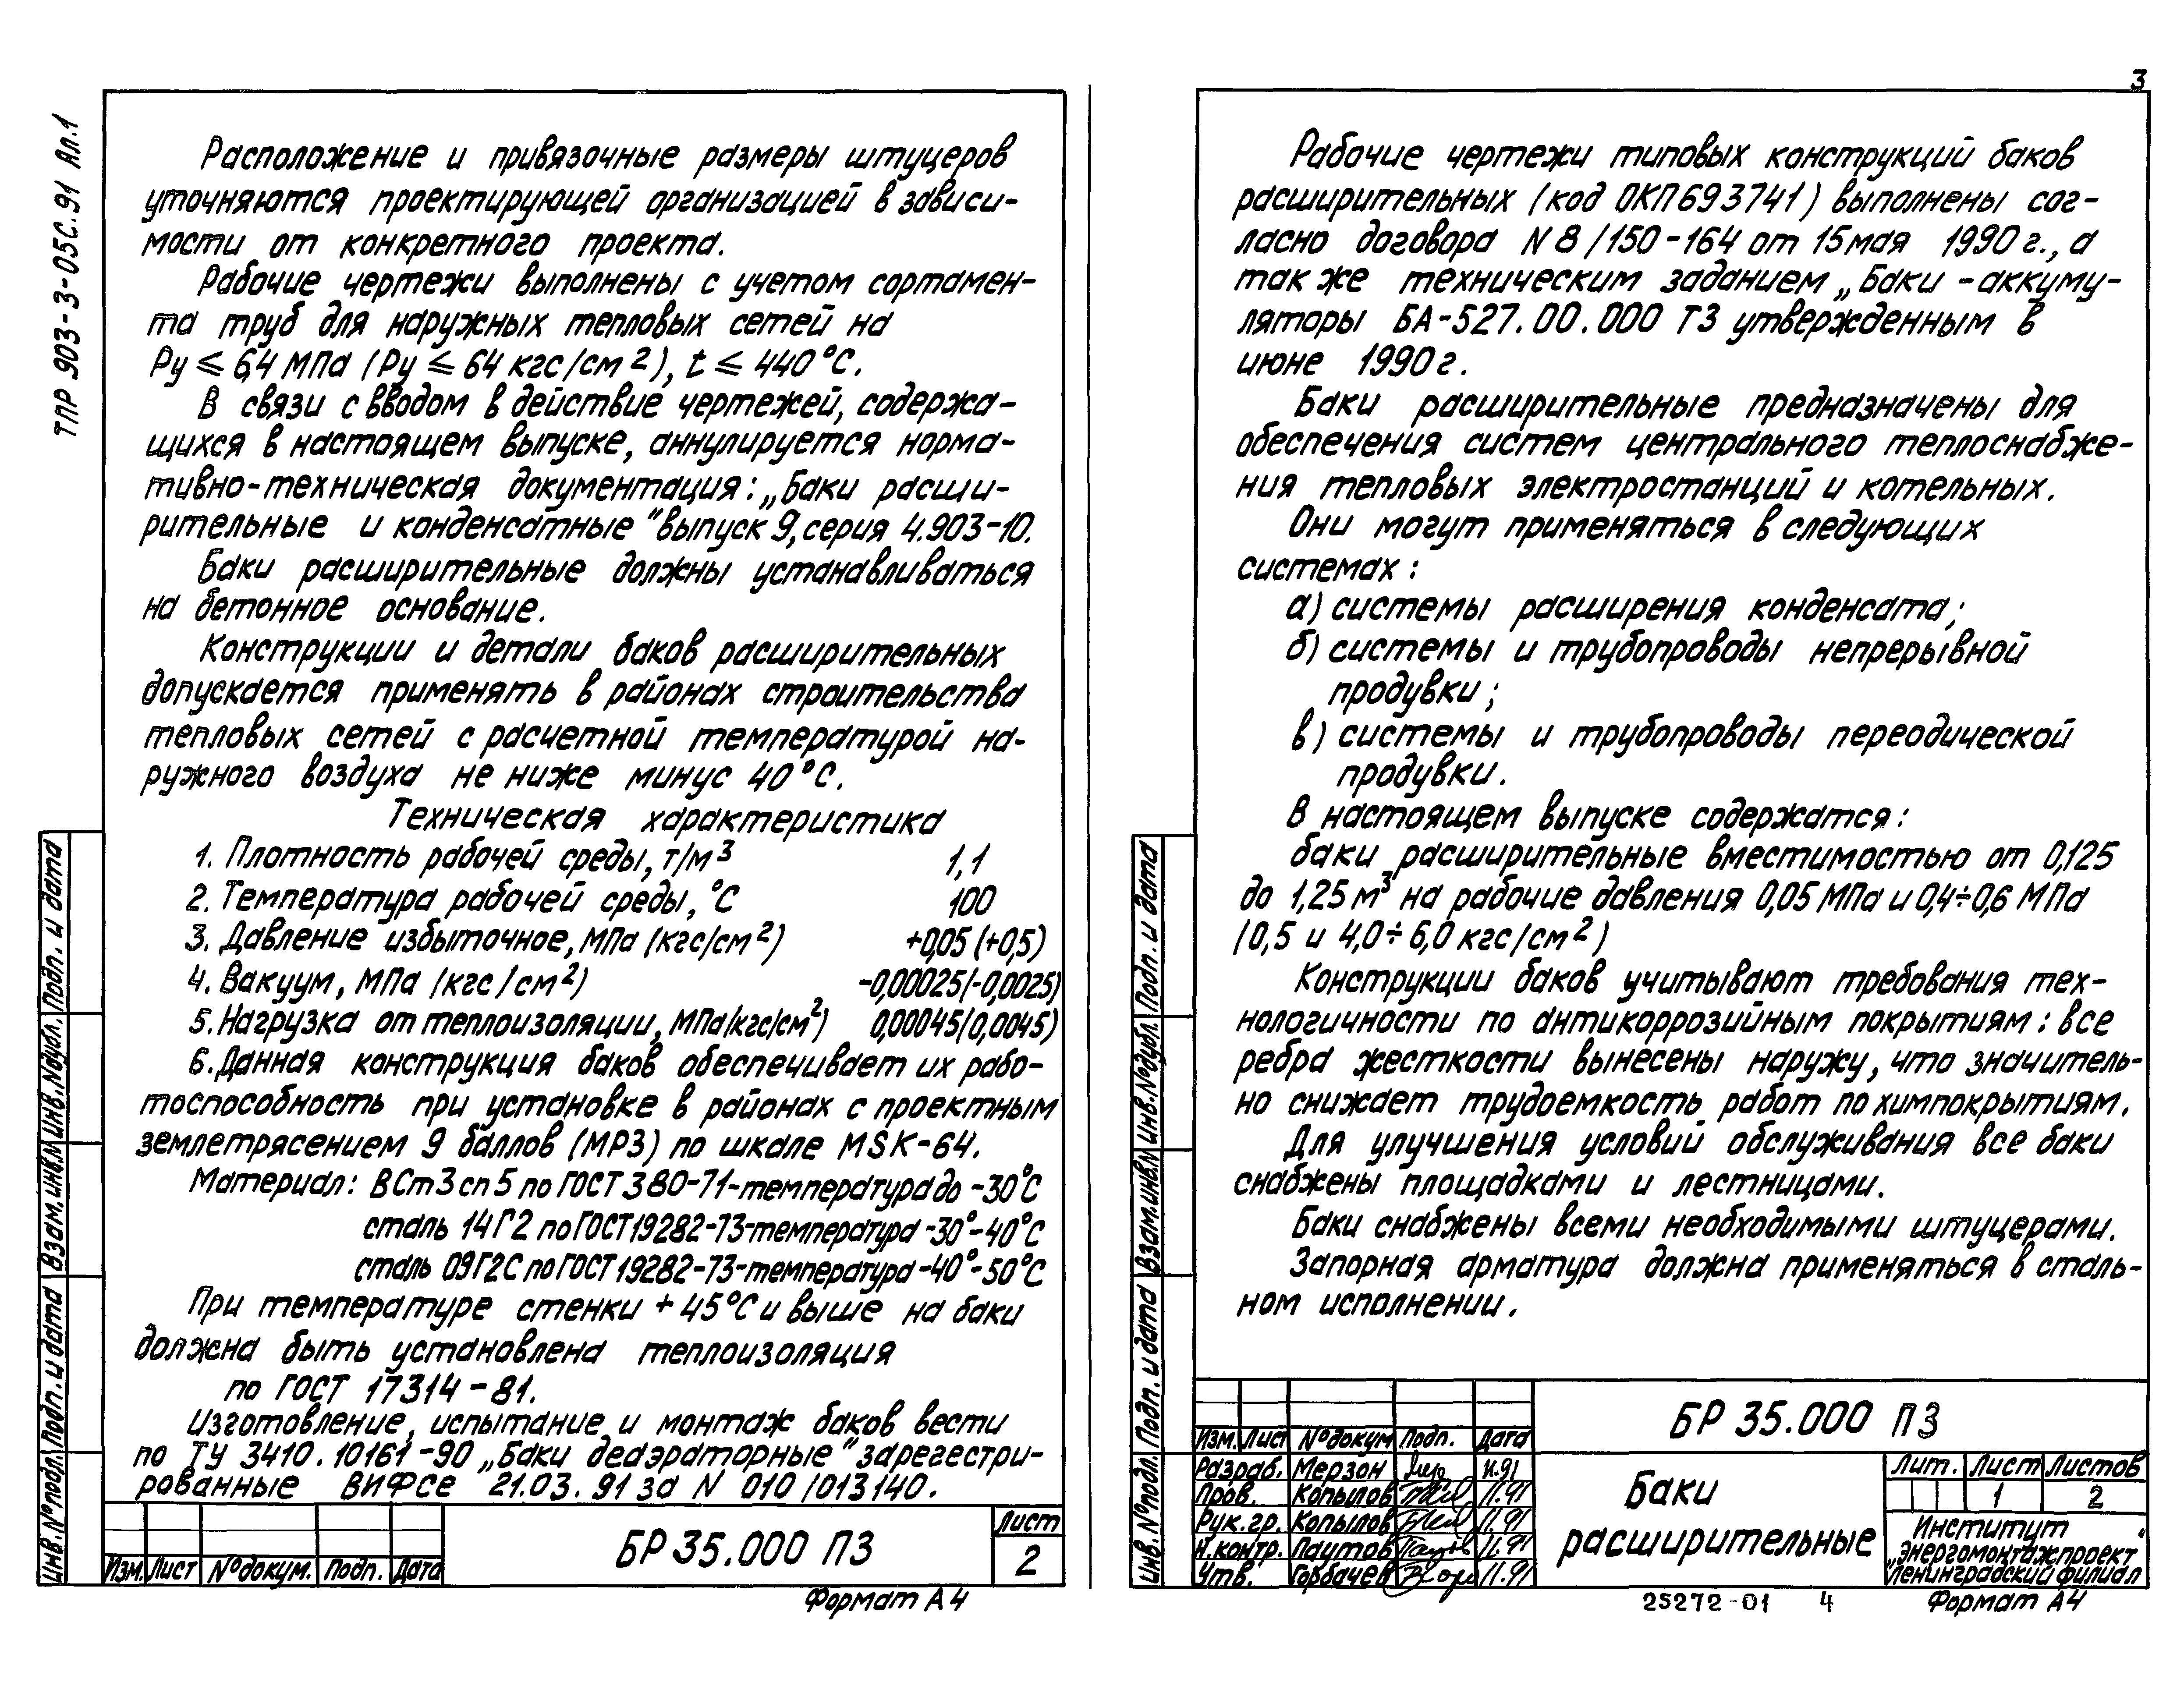 ТПР 903-3-05С.91 Ал.1
Расположение и привязочные размеры штуцеров
уточняются проектирующей организацией в зависи-
мости от конкретного проекта.
Рабочие чертежи выполнены с учетом сортамен-
та труб для наружных тепловых сетей на
Ру ≤ 6,4 МПа (Ру ≤ 64 кгс/см²), t ≤ 440°С.
В связи с вводом в действие чертежей, содержа-
щихся в настоящем выпуске, аннулируется норма-
тивно-техническая документация: „Баки расши-
рительные и конденсатные" выпуск 9, серия 4.903-10.
Баки расширительные должны устанавливаться
на бетонное основание.
Конструкции и детали баков расширительных
допускается применять в районах строительства
тепловых сетей с расчетной температурой на-
ружного воздуха не ниже минус 40°С.
Техническая характеристика
1. Плотность рабочей среды, т/м³ 1,1
2. Температура рабочей среды, °С 100
3. Давление избыточное, МПа (кгс/см²) +0,05 (+0,5)
4. Вакуум, МПа (кгс/см²) -0,00025(-0,0025)
5. Нагрузка от теплоизоляции, МПа(кгс/см²) 0,00045(0,0045)
6. Данная конструкция баков обеспечивает их рабо-
тоспособность при установке в районах с проектным
землетрясением 9 баллов (МРЗ) по шкале MSK-64.
Материал: ВСт3сп5 по ГОСТ 380-71-температура до -30°С
сталь 14Г2 по ГОСТ 19282-73-температура -30°-40°С
сталь 09Г2С по ГОСТ 19282-73-температура -40°-50°С
При температуре стенки +45°С и выше на баки
должна быть установлена теплоизоляция
по ГОСТ 17314-81.
Изготовление, испытание и монтаж баков вести
по ТУ 3410.10161-90 „Баки деаэраторные" зарегестри-
рованные ВИФСе 21.03.91 за N 010/013140.
Инв.№подл. Подп. и дата Взам.инв.N Инв.№дубл. Подп. и дата
Изм. Лист №докум. Подп. Дата
БР 35.000 ПЗ
Лист
2
Формат А4
3
Рабочие чертежи типовых конструкций баков
расширительных (код ОКП 693741) выполнены сог-
ласно договора N 8/150-164 от 15 мая 1990 г., а
так же техническим заданием „Баки-аккуму-
ляторы БА-527.00.000 ТЗ утвержденным в
июне 1990 г.
Баки расширительные предназначены для
обеспечения систем центрального теплоснабже-
ния тепловых электростанций и котельных.
Они могут применяться в следующих
системах:
а) системы расширения конденсата;
б) системы и трубопроводы непрерывной
продувки;
в) системы и трубопроводы переодической
продувки.
В настоящем выпуске содержатся:
баки расширительные вместимостью от 0,125
до 1,25 м³ на рабочие давления 0,05 МПа и 0,4÷0,6 МПа
(0,5 и 4,0÷6,0 кгс/см²)
Конструкции баков учитывают требования тех-
нологичности по антикоррозийным покрытиям: все
ребра жесткости вынесены наружу, что значитель-
но снижает трудоемкость работ по химпокрытиям.
Для улучшения условий обслуживания все баки
снабжены площадками и лестницами.
Баки снабжены всеми необходимыми штуцерами.
Запорная арматура должна применяться в сталь-
ном исполнении.
Инв.№подл. Подп. и дата Взам.инв.N Инв.№дубл. Подп. и дата
Изм. Лист №докум Подп. Дата
Разраб. Мерзон 11.91
Пров. Копылов 11.91
Рук.гр. Копылов 11.91
Н.контр. Паутов 11.91
Утв. Горбачев 11.91
БР 35.000 ПЗ
Баки
расширительные
Лит. Лист Листов
1 2
Институт
„Энергомонтажпроект"
Ленинградский филиал
25272-01 4
Формат А4